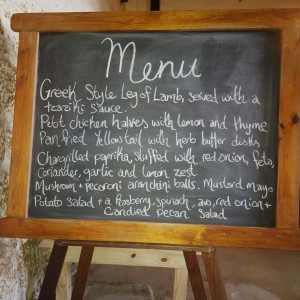 Menu
Greek Style Leg of Lamb, served with a
tzaziki sauce.
Petit chicken halves with lemon and thyme
Pan fried Yellowtail with herb butter disks
Chargrilled paprika, stuffed with red onion, feta,
Coriander, garlic and lemon zest
Mushroom + pecorini aranchini balls, Mustard mayo
Potato Salad + a Rasberry, spinach, avo, red onion +
Candied pecan Salad